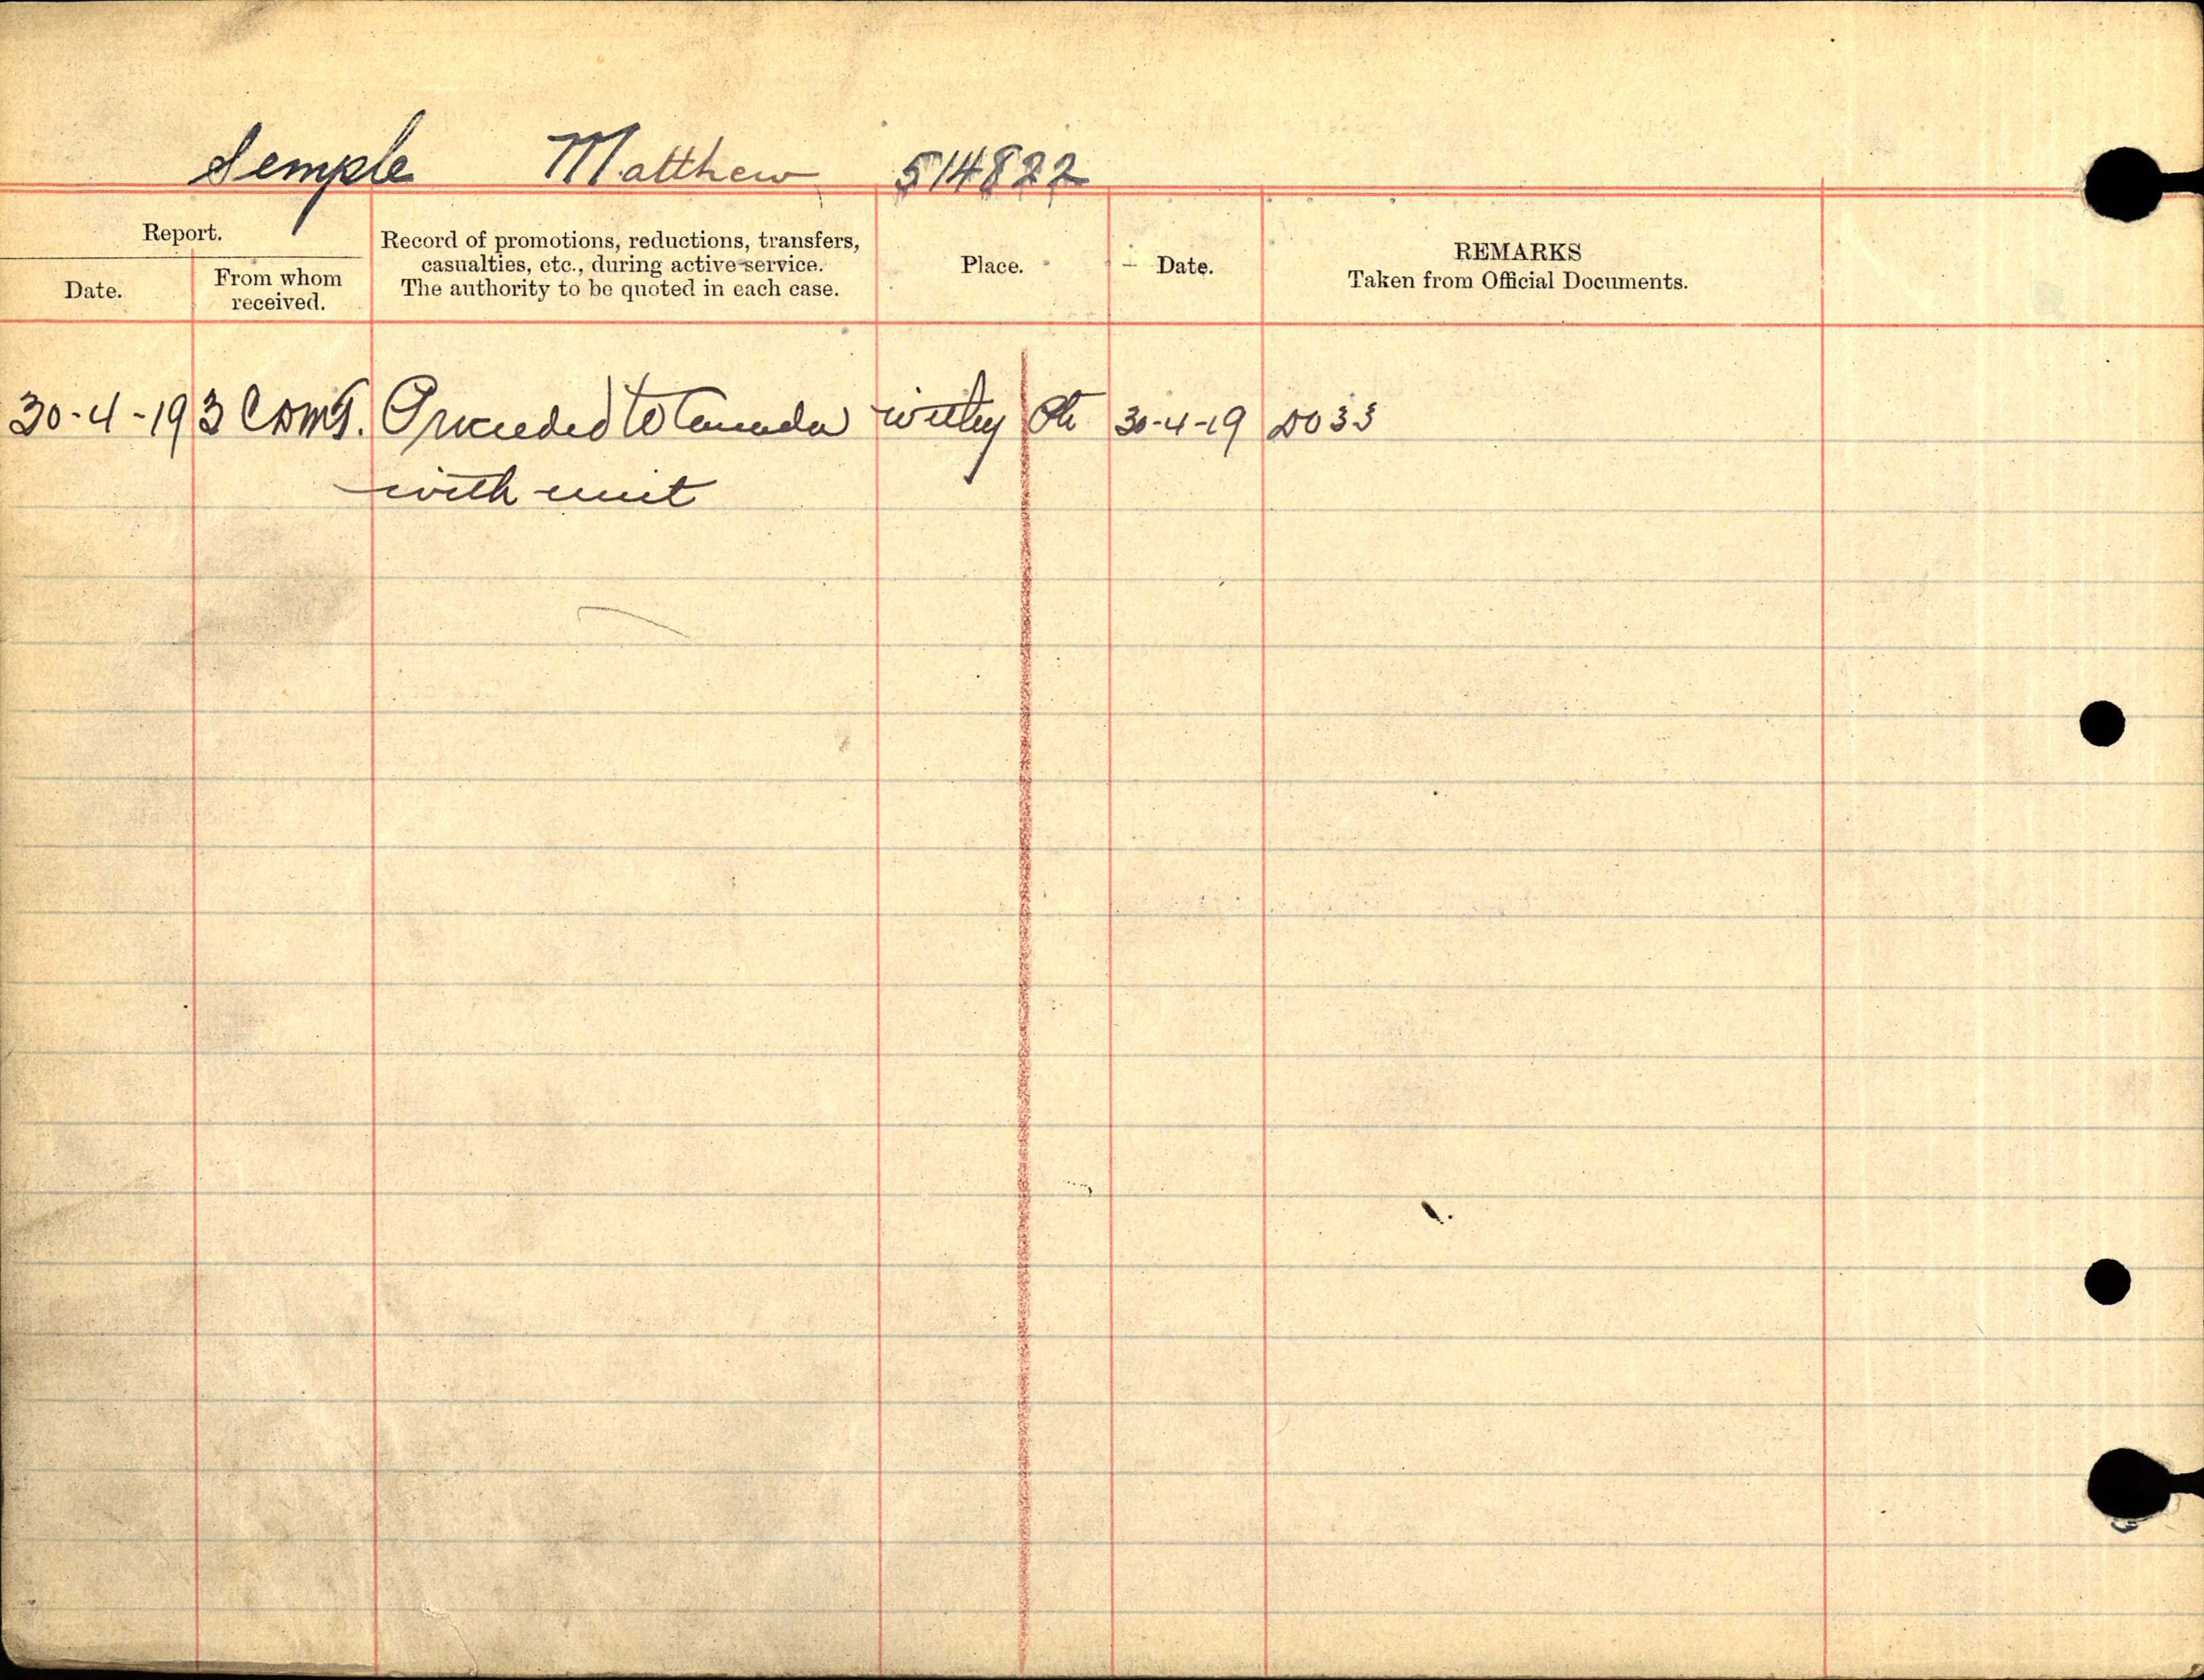 Semple Matthew 514822
Report.
Date.
From whom
received.
Record of promotions, reductions, transfers,
casualties, etc., during active service.
The authority to be quoted in each case.
Place.
Date.
REMARKS
Taken from Official Documents.
30-4-19 3 CDMT. Proceeded to Canada witley Pte 30-4-19 DO 33
with unit